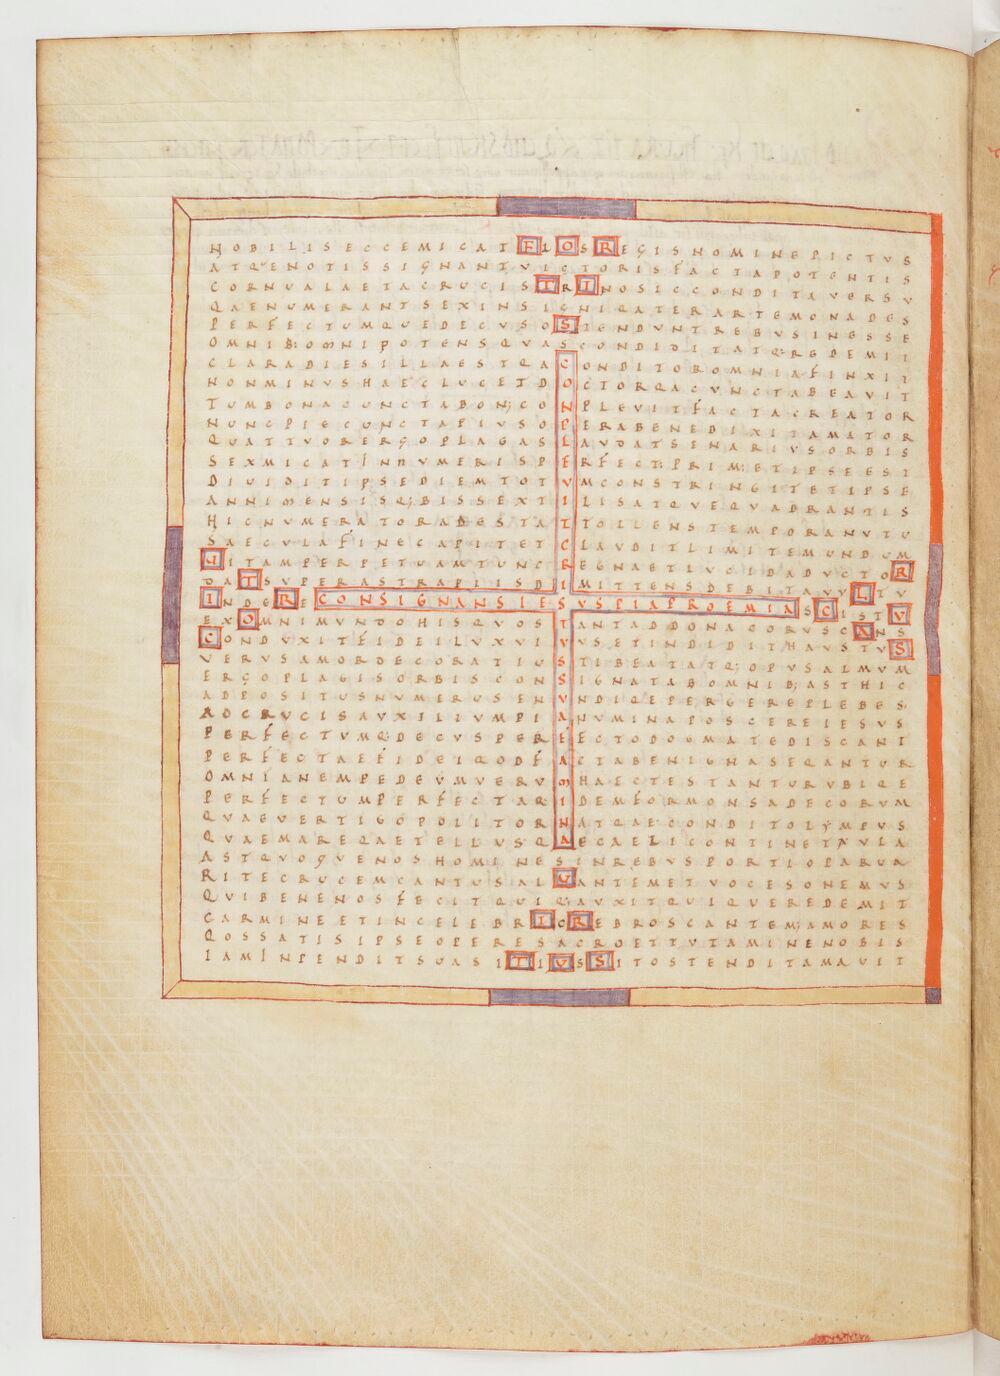 NOBILISECCEMICATFLOSREGISNOMINEPICTVS
ATQVENOTISSIGNANTVICTORISFACTAPOTENTIS
CORNVALAETACRUCISTRINOSICCONDITAVERSV
QAENUMERANTSEXINSIGNIQATERARTEMONADES
PERFECTUMQUEDECVSOSTENDVNTREBVSINESSE
OMNIB:OMNIPOTENSQVASCONDIDITATQ:REDEMIT
CLARADIESILLAESTQACONDITOROMNIAFINXIT
NONMINVSHAECLUCETDOCTORQACVNCTABEAVIT
TVMBONACUNCTABON;CONPLEVITFACTACREATOR
NUNCPIECUNCTAPIVSOPERABENEDIXITAMATOR
QUATTVORERGOPLAGASLAVDATSENARIVSORBIS
SEXMICATINNVMERISPERFECT:PRIM:ETIPSEEST
DIVIDITIPSEDIEMTOTVMCONSTRINGITETIPSE
ANNIMENSISQ;BISSEXTILISATQVEQVADRANTIS
HICNVMERATORADESTATTOLLENSTEMPORANVTU
SAECVLAFINECAPITETCLAVDITLIMITEMUNDUM
VITAMPERPETUAMTUNCREGNAETLVCIDADVCTOR
DATSVPERASTRAPIISDIMITTENSDEBITAVVLTV
INDERECONSIGNANSIESVSPIAPROEMIASCISTVV
EXOMNIMVNDOHISQVOSTANTADDONACORVSCANS
CONDVXITFIDEILVXVIVVSETINDIDITHAVSTVS
VERVSAMORDECORATIVSTIBEATATQ:OPVSALMVM
ERGOPLAGISORBISCONSIGNATABOMNIB;ASTHIC
ADPOSITUSNVMERUSENVNDIQEPERGEREPLEBES
ADCRVCISAVXILIVMPIANVMINAPOSCEREIESVS
PERFECTVMQ:DECVSPEREECTODOGMATEDISCANT
PERFECTAEFIDEIQODFACTABENIGNASEQANTUR
OMNIANEMPEDEVMVERVMHAECTESTANTURVBIQE
PERFECTUMPERFECTAQIDEMFORMONSADECORVM
QVAEVERTIGOPOLITORNATQAECONDITOLYMPVS
QVAEMAREQAETELLVSQAECAELICONTINETAVLA
ASTQVOQVENOSHOMINESINREBVSPORTIOPARVA
RITECRUCEMCANTUSALVANTEMETVOCESONEMVS
QVIBENENOSFECITQUIQ:AVXITQVIQVEREDEMIT
CARMINEETINCELEBRICREBROSCANTEM:AMORES
QOSSATISIPSEOPERESACROETTVTAMINENOBIS
IAMINPENDITSUASITIVSSITOSTENDITAMAVIT